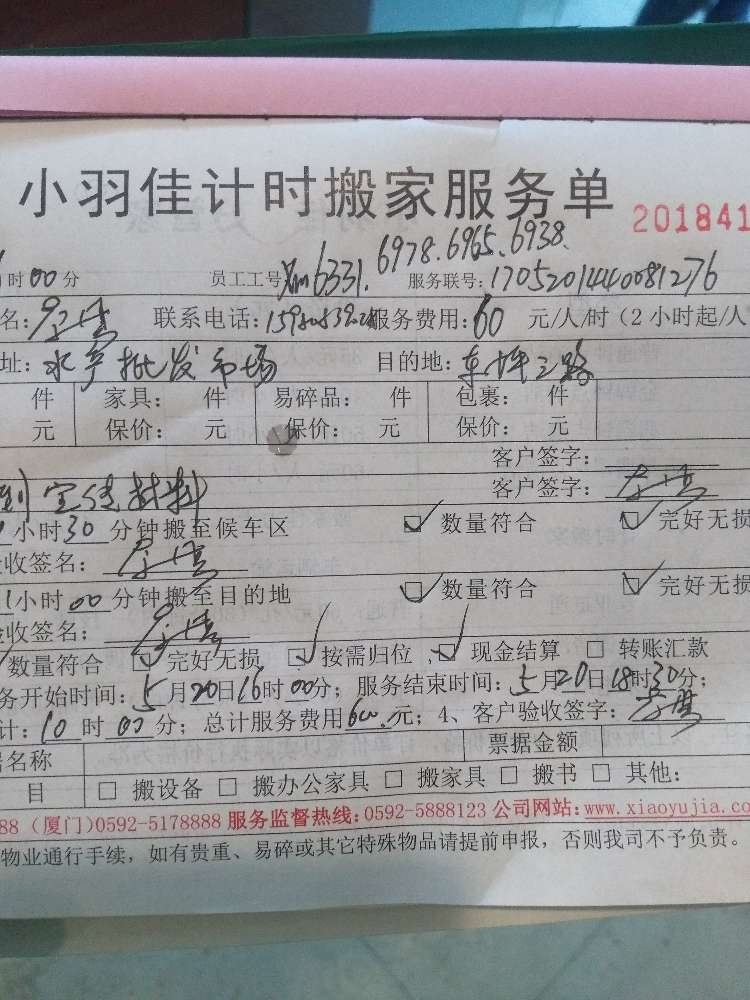 小羽佳计时搬家服务单
201841
时00分 员工工号 6331. 6978.6965.6938. 服务联号:1705201440081276
名: 联系电话:159 服务费用:60 元/人/时（2小时起/人
址:水产批发市场 目的地: 三路
件 家具: 件 易碎品: 件 包裹: 件
元 保价: 元 保价: 元 保价: 元
客户签字:
材料 客户签字:
小时30分钟搬至候车区 数量符合 完好无损
收签名:
1小时00分钟搬至目的地 数量符合 完好无损
收签名:
数量符合 完好无损 按需归位 现金结算 转账汇款
务开始时间:5月20日16时00分；服务结束时间:5月20日18时30分；
计:10时00分；总计服务费用600元；4、客户验收签字:
名称 票据金额
目 搬设备 搬办公家具 搬家具 搬书 其他:
88（厦门)0592-5178888 服务监督热线:0592-5888123 公司网站:www.xiaoyujia.com
物业通行手续，如有贵重、易碎或其它特殊物品请提前申报，否则我司不予负责。